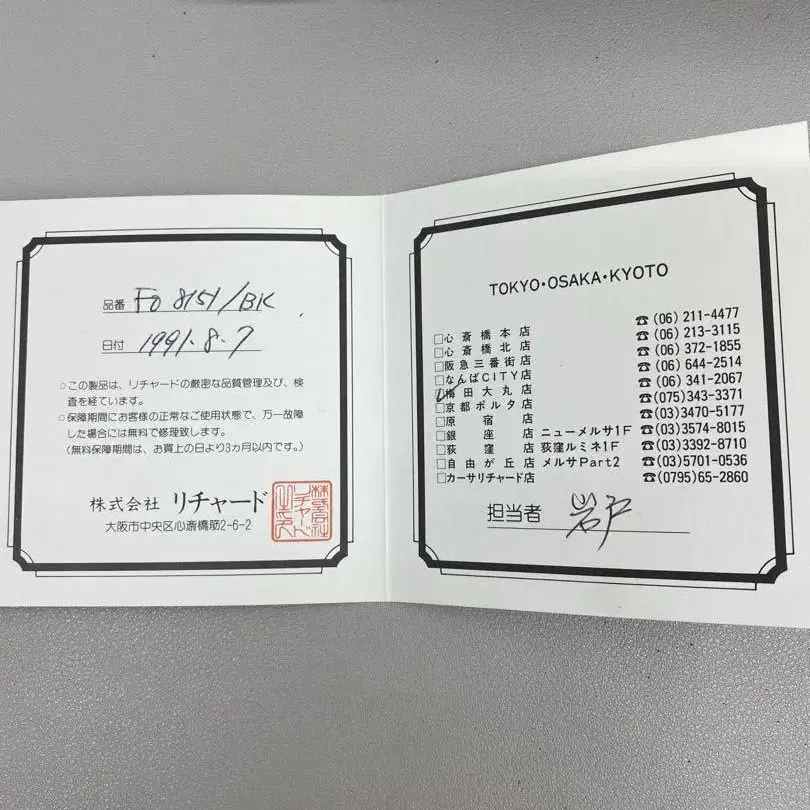 品番 FO 8151/BK
日付 1991.8.7
○この製品は、リチャードの厳密な品質管理及び、検
査を経ています。
○保障期間にお客様の正常なご使用状態で、万一故障
した場合には無料で修理致します。
(無料保障期間は、お買上の日より3ヵ月以内です。)
株式会社 リチャード
大阪市中央区心斎橋筋2-6-2
株式会社
リチャード
TOKYO・OSAKA・KYOTO
□心斎橋本店 ☎(06)211-4477
□心斎橋北店 ☎(06)213-3115
□阪急三番街店 ☎(06)372-1855
□なんばCITY店 ☎(06)644-2514
☑梅田大丸店 ☎(06)341-2067
□京都ポルタ店 ☎(075)343-3371
□原宿店 ☎(03)3470-5177
□銀座店 ニューメルサ1F ☎(03)3574-8015
□荻窪店 荻窪ルミネ1F ☎(03)3392-8710
□自由が丘店 メルサPart2 ☎(03)5701-0536
□カーサリチャード店 ☎(0795)65-2860
担当者 岩戸